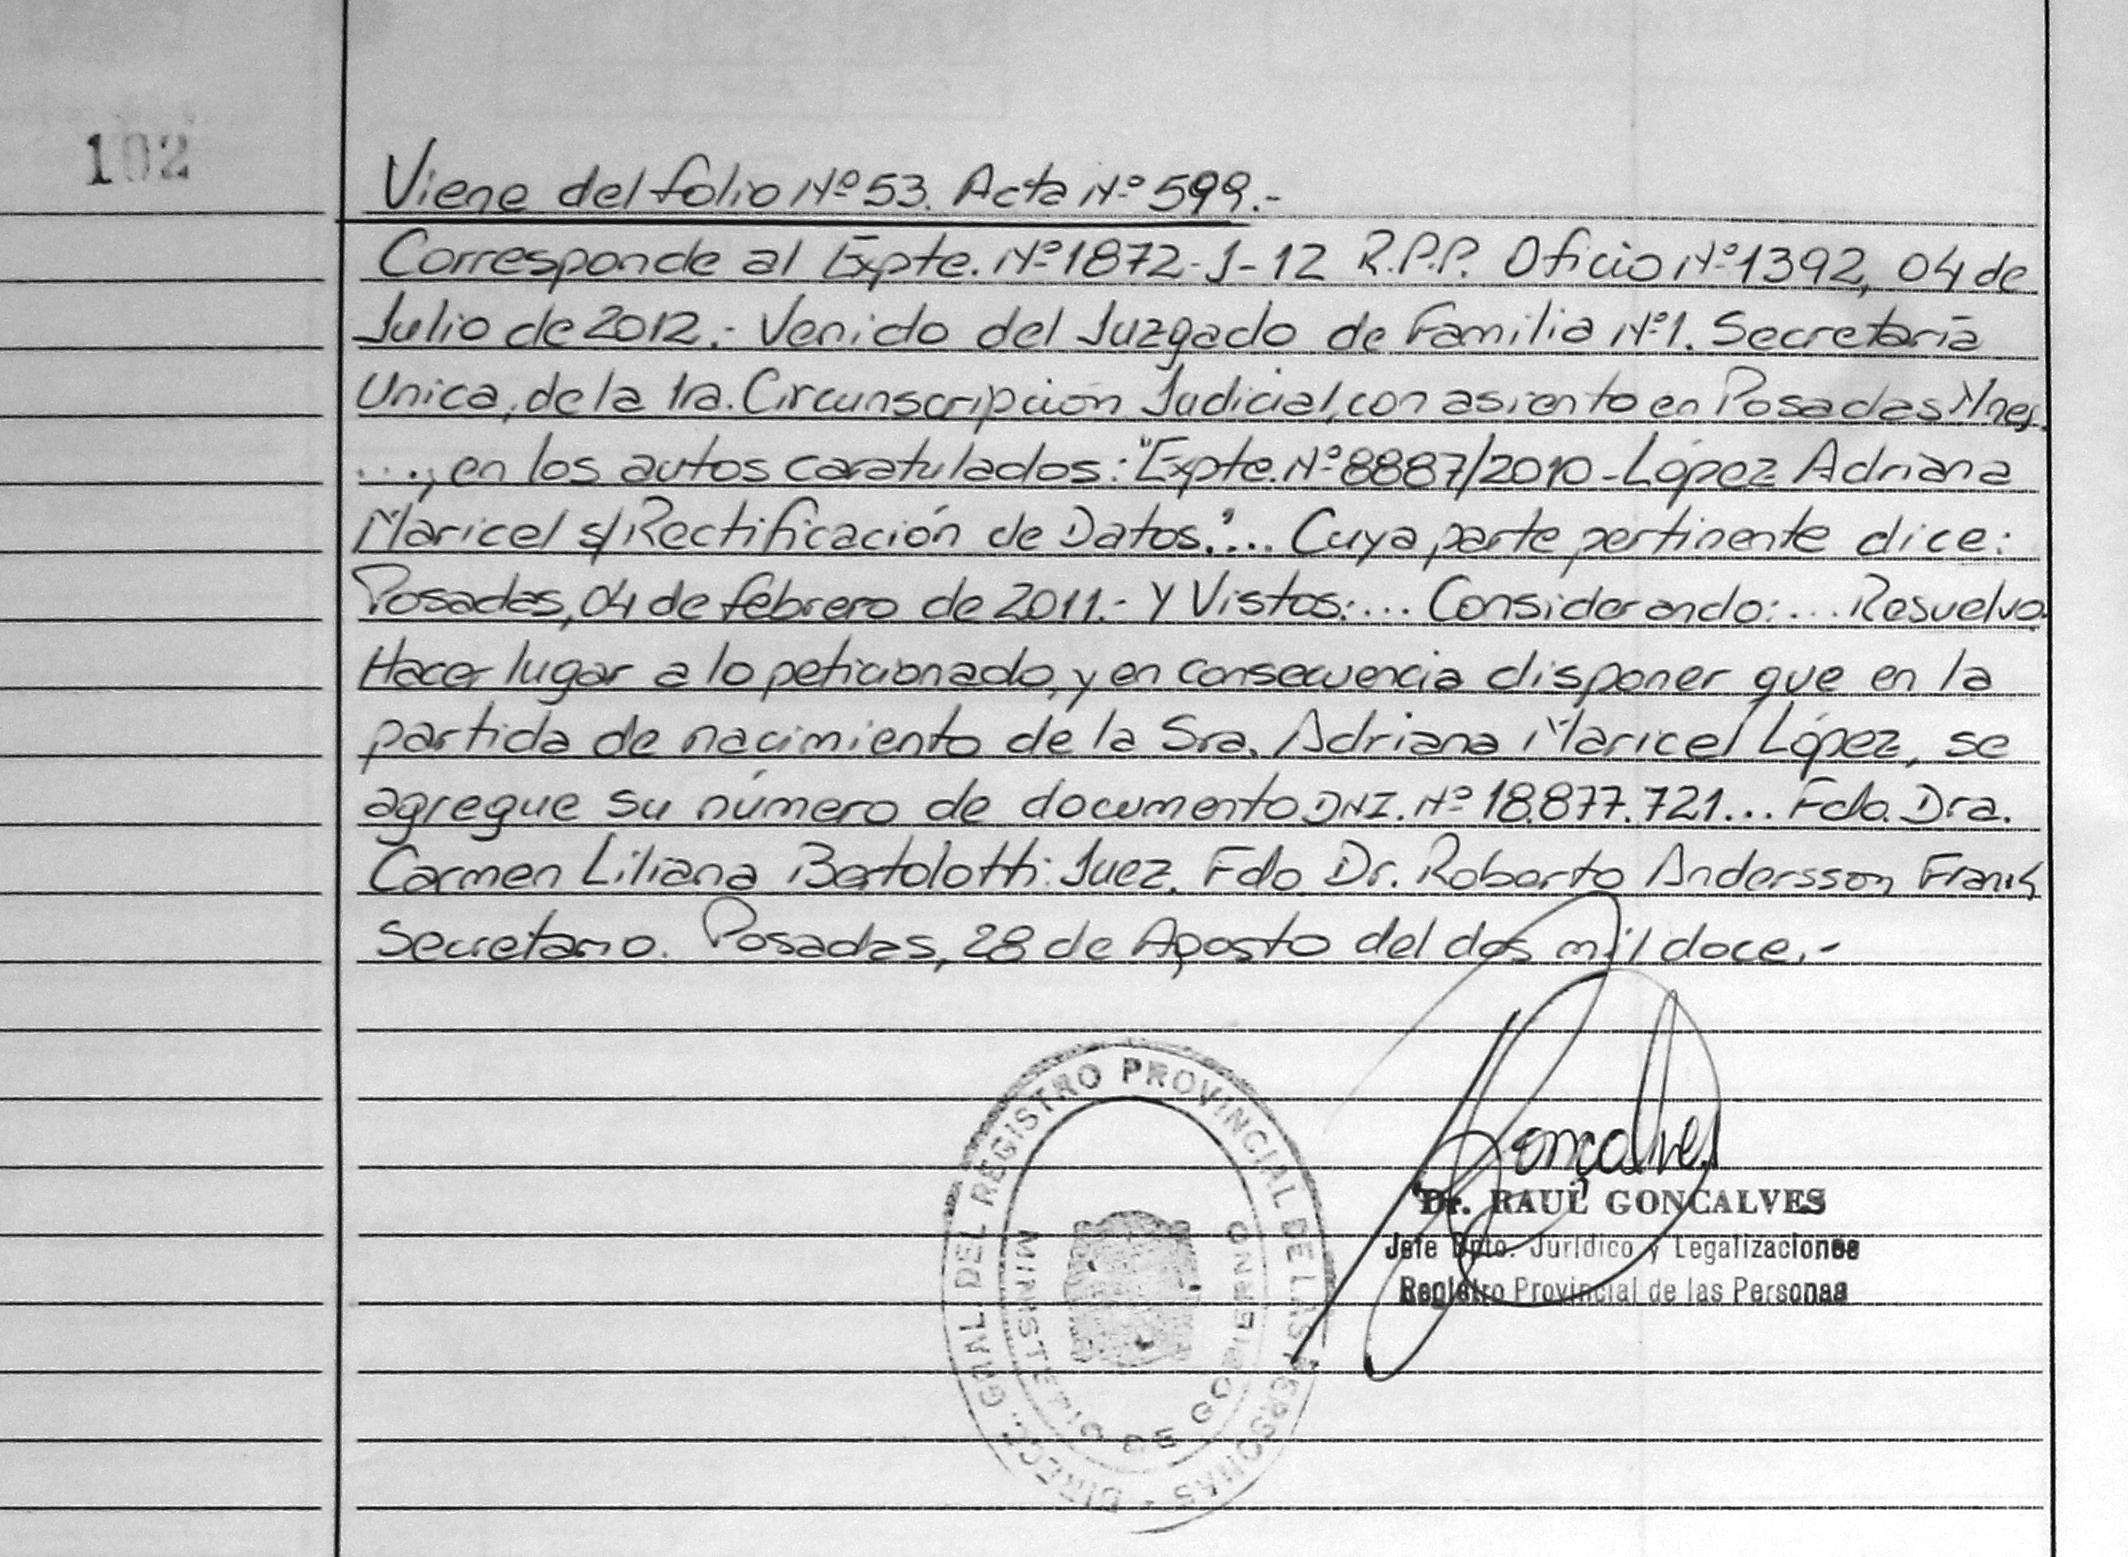 102
Viene del folio Nº 53. Acta Nº 599.-
Corresponde al Expte. Nº 1872-J-12 R.P.P. Oficio Nº 1392, 04 de
Julio de 2012.- Venido del Juzgado de Familia Nº 1. Secretaría
Unica, de la 1ra. Circunscripción Judicial, con asiento en Posadas Mnes.
...., en los autos caratulados: "Expte. Nº 8887/2010 - López Adriana
Maricel s/Rectificación de Datos."... Cuya parte pertinente dice:
Posadas, 04 de febrero de 2011.- Y Vistos:... Considerando:... Resuelvo
Hacer lugar a lo peticionado, y en consecuencia disponer que en la
partida de nacimiento de la Sra. Adriana Maricel López, se
agregue su número de documento DNI. Nº 18.877.721... Fdo. Dra.
Carmen Liliana Bertolotti: Juez. Fdo Dr. Roberto Andersson Frank
Secretario. Posadas, 28 de Agosto del dos mil doce.-
Gonçalves
Dr. RAUL GONCALVES
Jefe Dpto. Jurídico y Legalizaciones
Registro Provincial de las Personas
DIRECC. GRAL. DEL REGISTRO PROVINCIAL DE LAS PERSONAS
MINISTERIO DE GOBIERNO